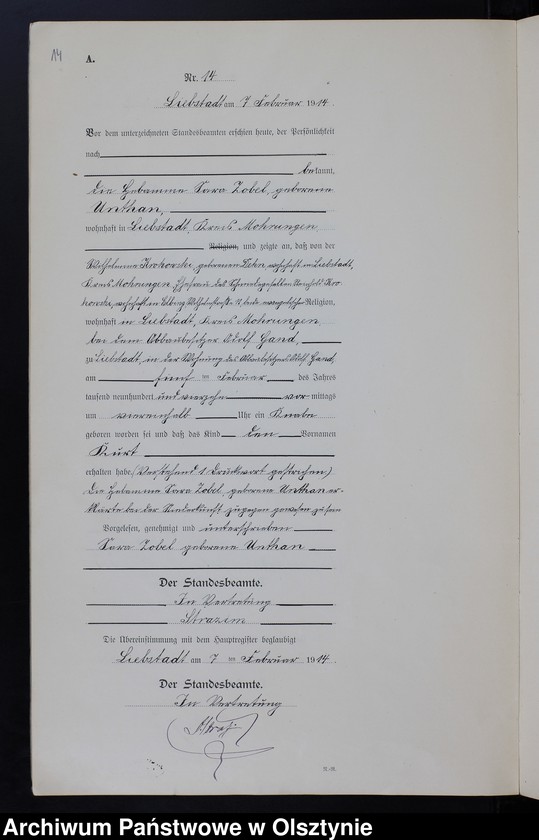 14
A.
Nr. 14
Liebstadt am 7 Februar 1914.
Vor dem unterzeichneten Standesbeamten erschien heute, der Persönlichkeit
nach
bekannt,
die Hebamme Sara Zobel, geborene
Unthan,
wohnhaft in Liebstadt, Kreis Mohrungen,
Religion, und zeigte an, daß von der
Wilhelmine Krokowski, geborenen Zehn, wohnhaft in Liebstadt,
Kreis Mohrungen, Ehefrau des Reinhold Kro-
kowski, wohnhaft in Elbing, beide evangelischer Religion,
wohnhaft in Liebstadt, Kreis Mohrungen
bei dem Abbaubesitzer Adolf Gand,
zu Liebstadt, in der Wohnung des Abbaubesitzers Adolf Gand,
am fünf ten Februar des Jahres
tausend neunhundert und vierzehn vor mittags
um viereinhalb Uhr ein Knabe
geboren worden sei und daß das Kind den Vornamen
Kurt
erhalten habe. (Vorstehend 1 Druckwort gestrichen)
Die Hebamme Sara Zobel geborene Unthan er-
klärte bei der Niederkunft zugegen gewesen zu sein
Vorgelesen, genehmigt und unterschrieben
Sara Zobel geborene Unthan
Der Standesbeamte.
In Vertretung
Strazim
Die Übereinstimmung mit dem Hauptregister beglaubigt
Liebstadt am 7 ten Februar 1914.
Der Standesbeamte.
In Vertretung
Archiwum Państwowe w Olsztynie